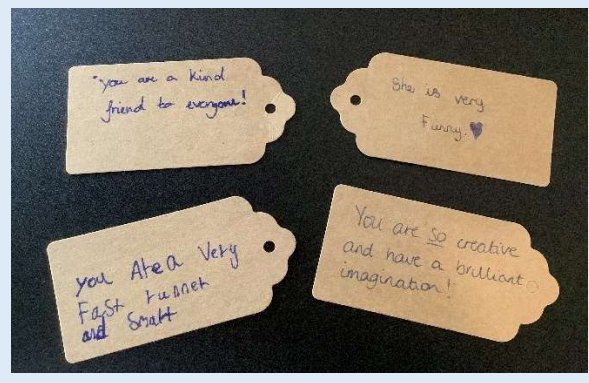 you are a kind
friend to everyone!
She is very
Funny.
you Are a Very
Fast runner
and Smart
You are so creative
and have a brilliant
imagination!